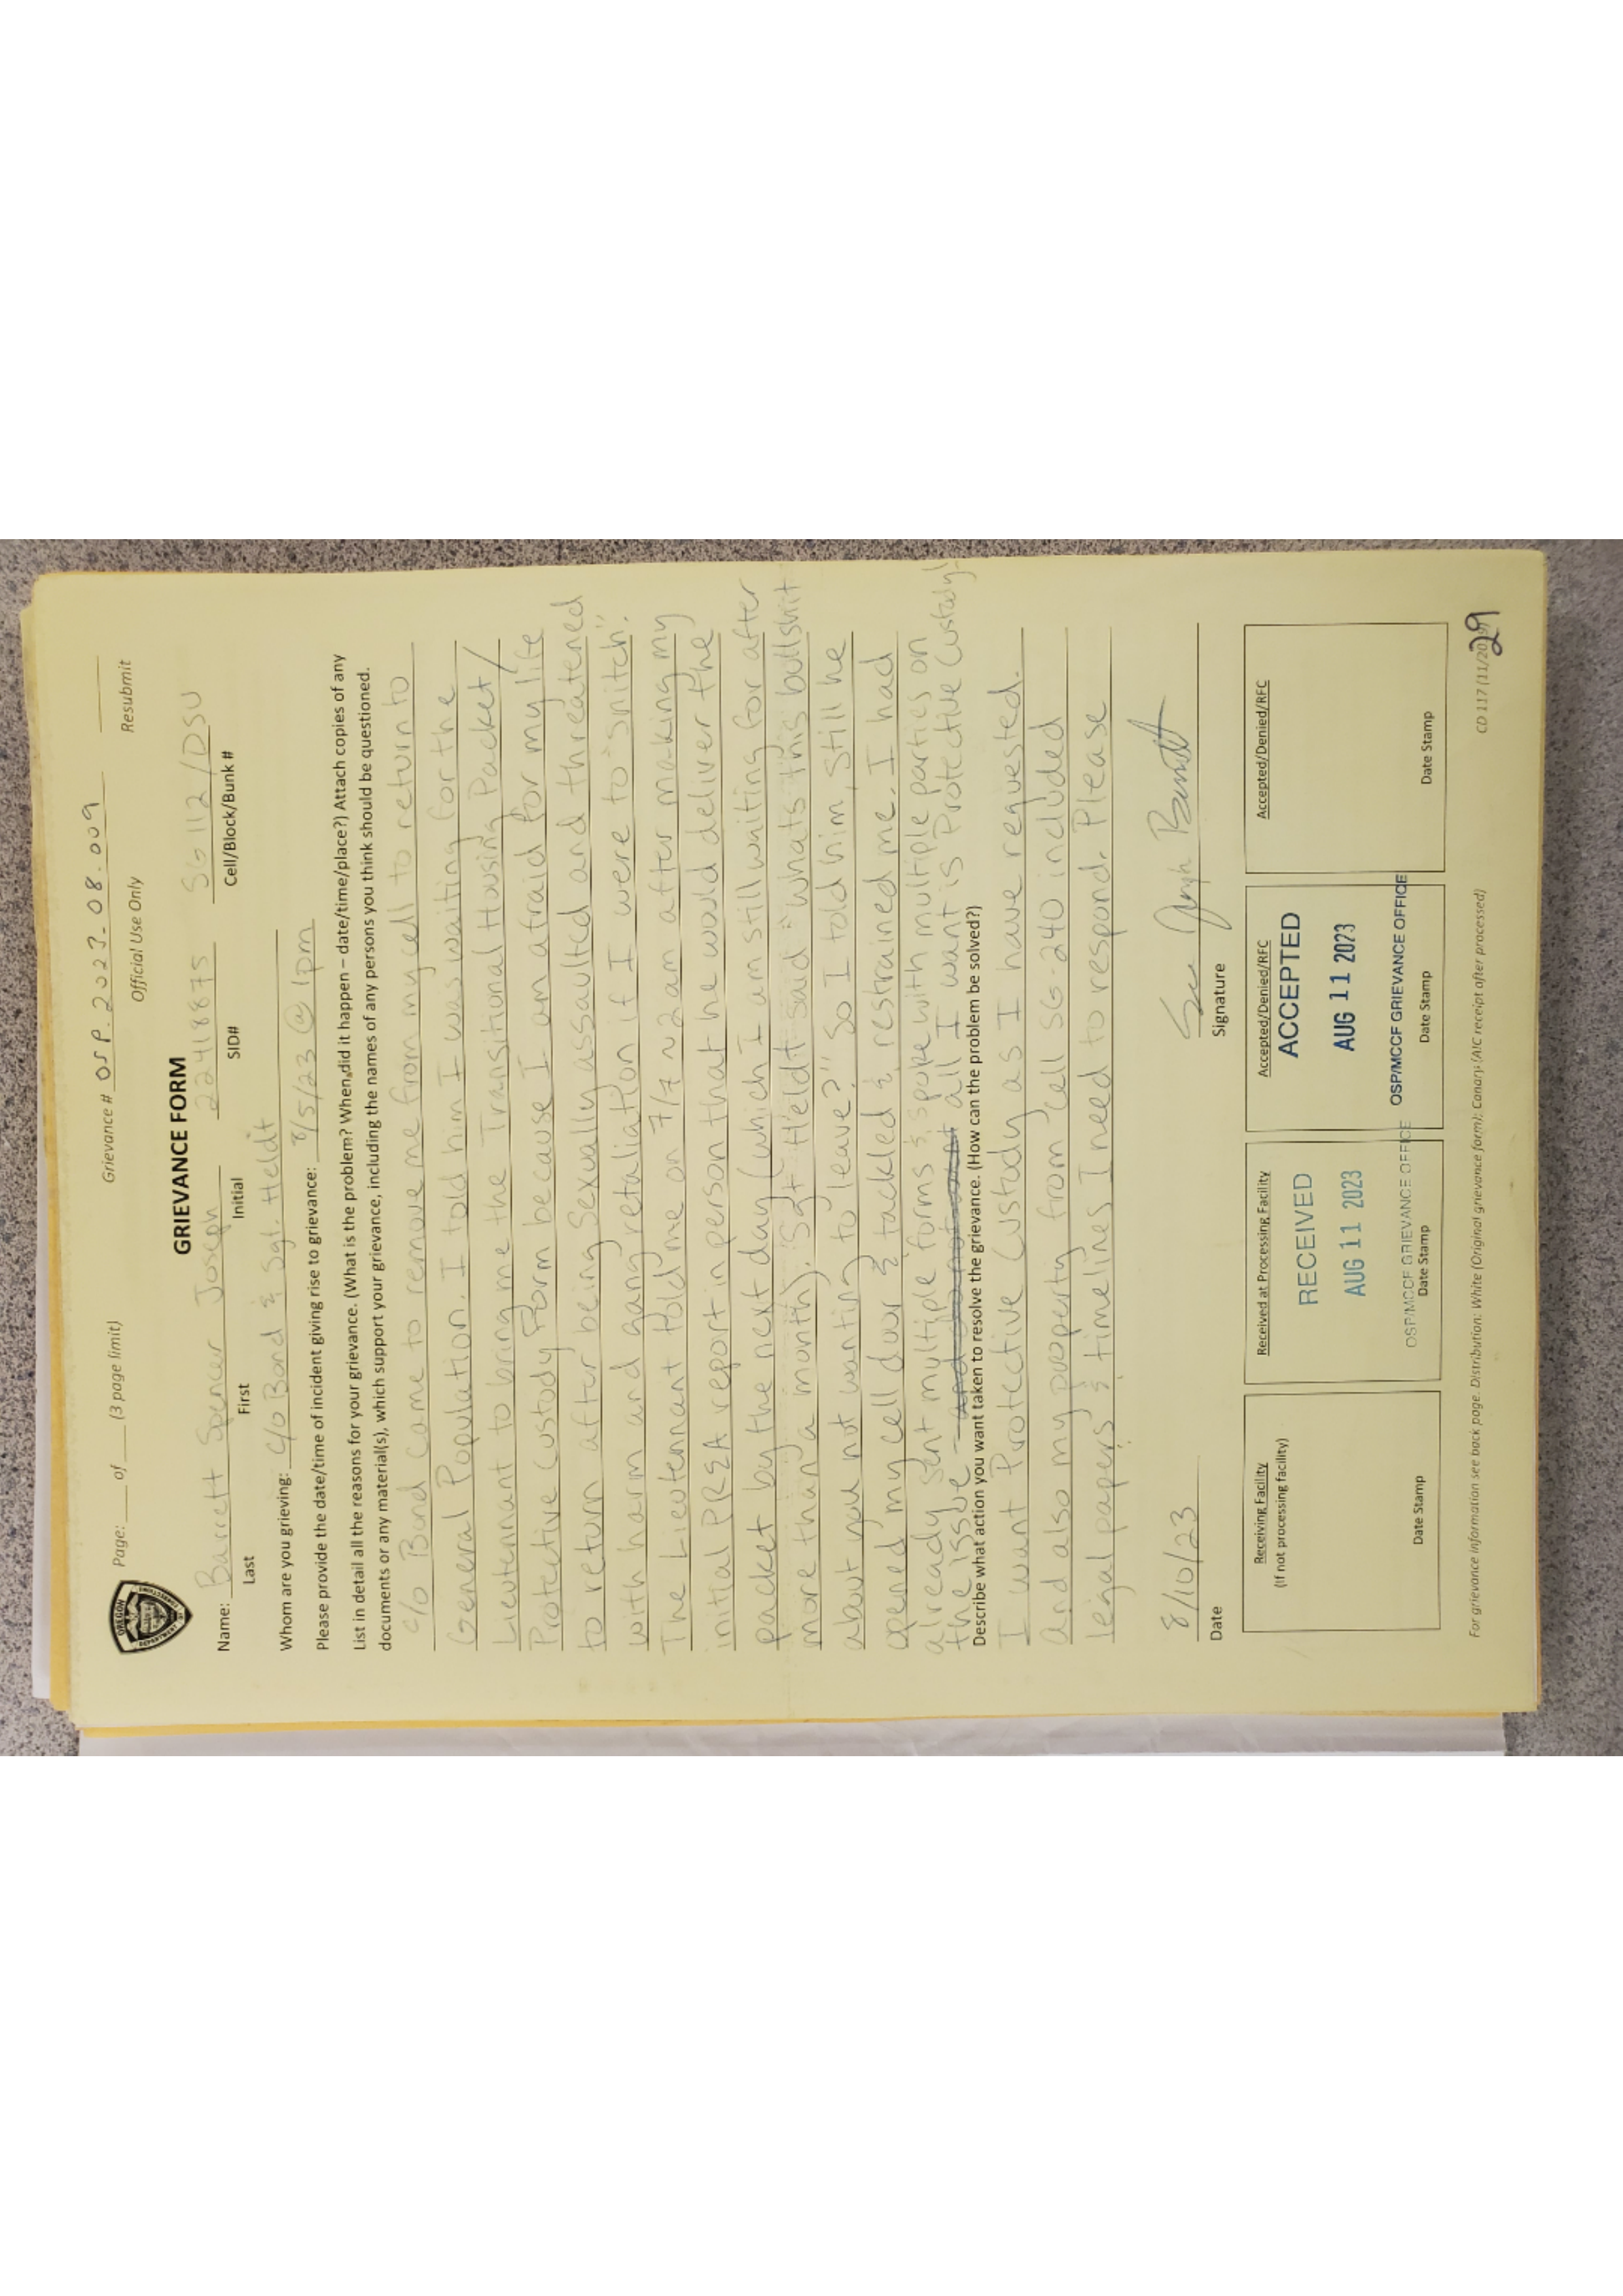 Grievance # OSP.2023.08.009
Page: ___ of ___ (3 page limit)
Official Use Only
Resubmit
OREGON
DEPARTMENT
GRIEVANCE FORM
Name: Barrett Spencer Joseph 22418875 SG112/DSU
Last First Initial SID# Cell/Block/Bunk #
Whom are you grieving: C/O Bond & Sgt. Heldt
Please provide the date/time of incident giving rise to grievance: 8/5/23 @ 1pm
List in detail all the reasons for your grievance. (What is the problem? When did it happen – date/time/place?) Attach copies of any
documents or any material(s), which support your grievance, including the names of any persons you think should be questioned.
C/O Bond came to remove me from my cell to return to
General Population. I told him I was waiting for the
Lieutennant to bring me the Transitional Housing Packet/
Protective Custody Form because I am afraid for my life
to return after being Sexually assaulted and threatened
with harm and gang retaliation if I were to "snitch".
The Lieutennant told me on 7/7 ~ 2am after making my
initial PREA report in person that he would deliver the
packet by the next day (which I am still waiting for after
more than a month). Sgt Heldt said "whats this bullshit
about you not wanting to leave?" So I told him, still he
opened my cell door & tackled & restrained me. I had
already sent multiple forms & spoke with multiple parties on
the issue all I want is Protective Custody!
Describe what action you want taken to resolve the grievance. (How can the problem be solved?)
I want Protective Custody as I have requested.
And also my property from cell SG-240 included
legal papers & timelines I need to respond. Please
8/10/23
Date
Signature
Receiving Facility
(If not processing facility)
Date Stamp
Received at Processing Facility
RECEIVED
AUG 11 2023
OSP/MCCF GRIEVANCE OFFICE
Date Stamp
Accepted/Denied/RFC
ACCEPTED
AUG 11 2023
OSP/MCCF GRIEVANCE OFFICE
Date Stamp
Accepted/Denied/RFC
Date Stamp
For grievance information see back page. Distribution: White (Original grievance form); Canary (AIC receipt after processed)
CD 117 (11/20
29